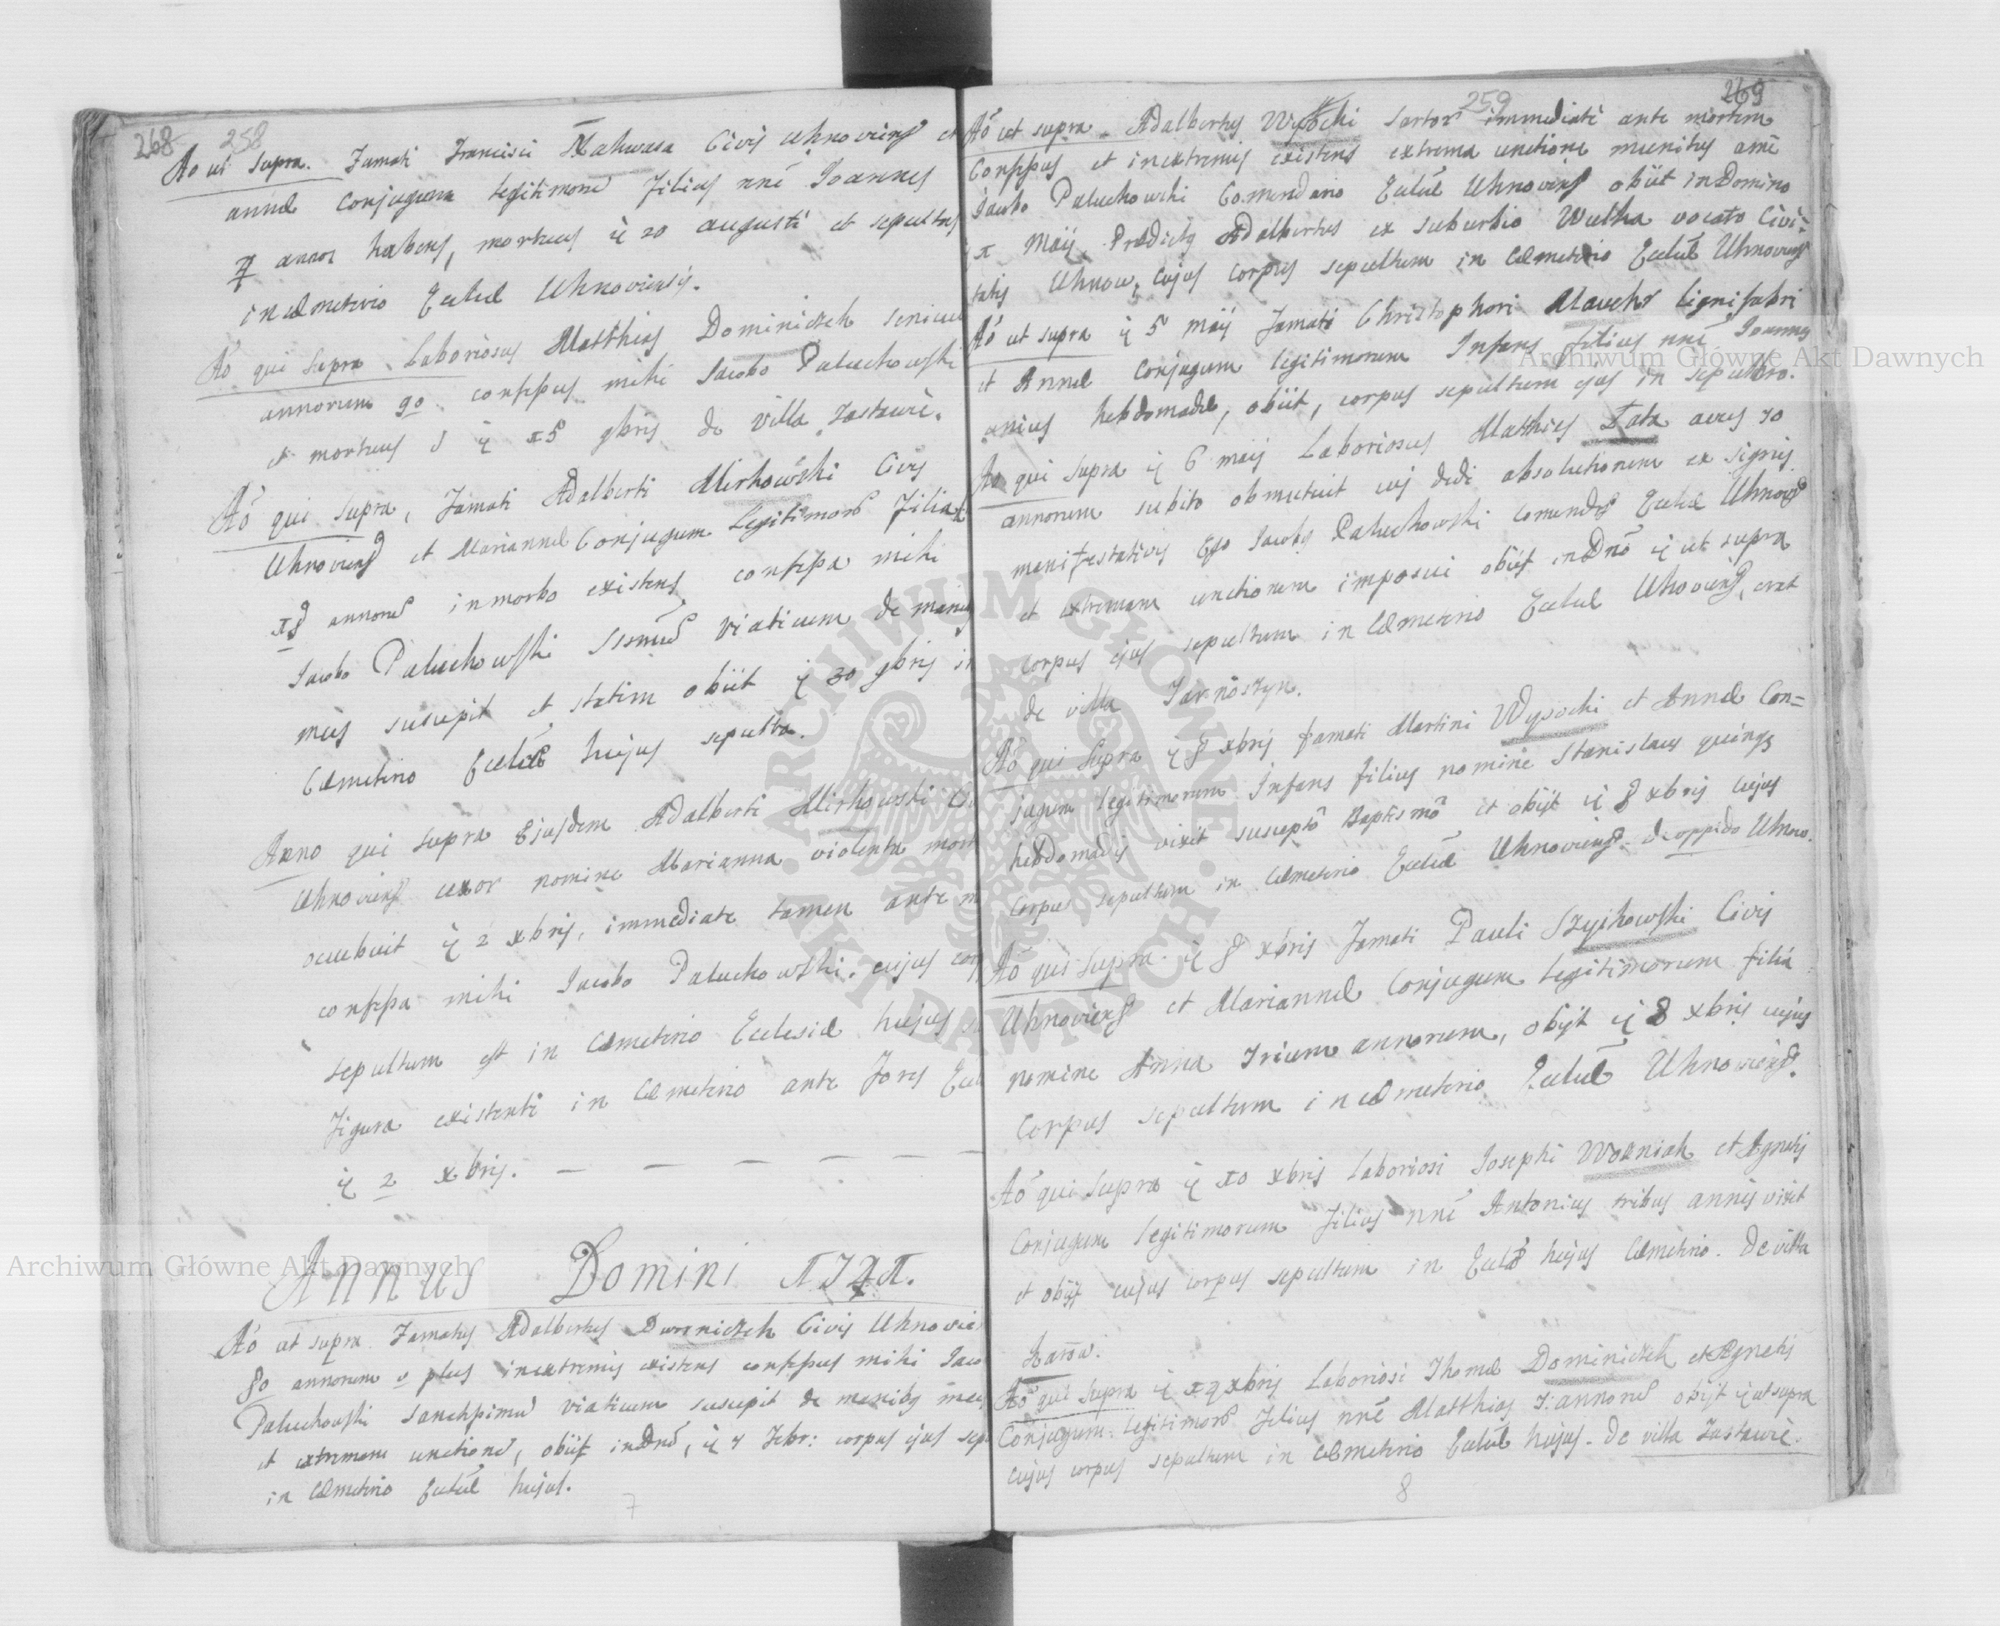 268 258
Ao ut supra. Famati Francisci Makwasa Civis Uhnoviens et
annæ Conjugum legitimorũ Filius nñe Joannes
7 annos habens, mortuus ẏ 20 augusti et sepultus
in cæmeterio Ecclæ Uhnoviensis.
Ao qui supra Laboriosus Matthias Dominiczek seniculus
annorum 90. confessus mihi Jacobo Paluchowski
et mortuus ẏ 15 9bris de villa Zastawie.
Ao qui supra, Famati Adalberti Mirkowski Civis
Uhnoviens et Mariannæ Conjugum Legitimorũ Filia
annorũ in morbo existens confessa mihi
Jacobo Paluchowski SSmũ Viaticum de manibus
meis suscepit et statim obiit ẏ 30 9bris in
Cæmeterio Ecclæ hujus sepulta.
Anno qui supra Ejusdem Adalberti Mirkowski
Uhnoviens uxor nomine Marianna violenta
occubuit ẏ 2 xbris, immediate tamen ante
confessa mihi Jacobo Paluchowski. cujus
sepultum est in Cæmeterio Ecclesiæ hujus
Figura existenti in Cæmeterio ante Fores
ẏ 2 xbris. — — — — — —
Annus Domini 1741.
Ao ut supra Famatus Adalbertus Dworniczek Civis Uhnovie
80 annorum et plus in extremis existens confessus mihi Jaco
Paluchowski Sanctissimũ viaticum suscepit de manibus meis
et extremam unctionẽ, obiit in Dnõ, ẏ 4 Febr: corpus ejus sep
in Cæmeterio Ecclæ hujus.
7
259 269
Ao ut supra Adalbertus Wysocki Sartor immediate ante mortem
Confessus et in extremis existens extrema unctione munitus a me
Jacobo Paluchowski Comendario Ecclæ Uhnoviens obiit in Domino
1 Maij. Prædictus Adalbertus ex suburbio Wulka vocato Civi-
tatis Uhnow, cujus corpus sepultum in Cæmeterio Ecclæ Uhnoviens
Ao ut supra ẏ 5 Maij Famati Christophori Mauckr Lignifabri
et Annæ Conjugum legitimorum Infans filius nñe Joannes
unius hebdomadæ, obiit, corpus sepultum ejus in sepulchro.
Ao qui supra ẏ 6 maij Laboriosus Matthias Data
annorum subito obmutuit cui dedi absolutionem ex signis
manifestativis Ego Jacobus Paluchowski comendrs Ecclæ Uhnovs
et extremam unctionem imposui obiit in Dnõ ẏ ut supra
corpus ejus sepultum in Cæmeterio Ecclæ Uhnoviens, erat
de villa Tarnoszyn.
Ao qui supra ẏ 8 xbris Famati Martini Wysocki et Annæ Con=
jugum legitimorum Infans filius nomine Stanislaus quinq3
hebdomadis vixit suscepto Baptismo et obijt ẏ 8 xbris cujus
Corpus sepultum in Cæmeterio Ecclæ Uhnoviens. de oppido Uhnow.
Ao qui supra ẏ 8 xbris Famati Pauli Szyikowski Civis
Uhnoviens et Mariannæ Conjugum Legitimorum filia
nomine Anna trium annorum, obijt ẏ 8 xbris cujus
Corpus sepultum in Cæmeterio Ecclæ Uhnoviens.
Ao qui supra ẏ 10 xbris Laboriosi Josephi Wozniak et Agnetis
Conjugum Legitimorum Filius nñe Antonius tribus annis vixit
et obijt cujus corpus sepultum in Ecclæ hujus Cæmeterio. De villa
Karow.
Ao qui supra ẏ xbris Laboriosi Thomæ Dominiczek et Agnetis
Conjugum legitimorũ Filius nñe Matthias annorũ obijt ẏ ut supra
Cujus corpus sepultum in Cæmeterio Ecclæ hujus. De villa Zastawie.
8